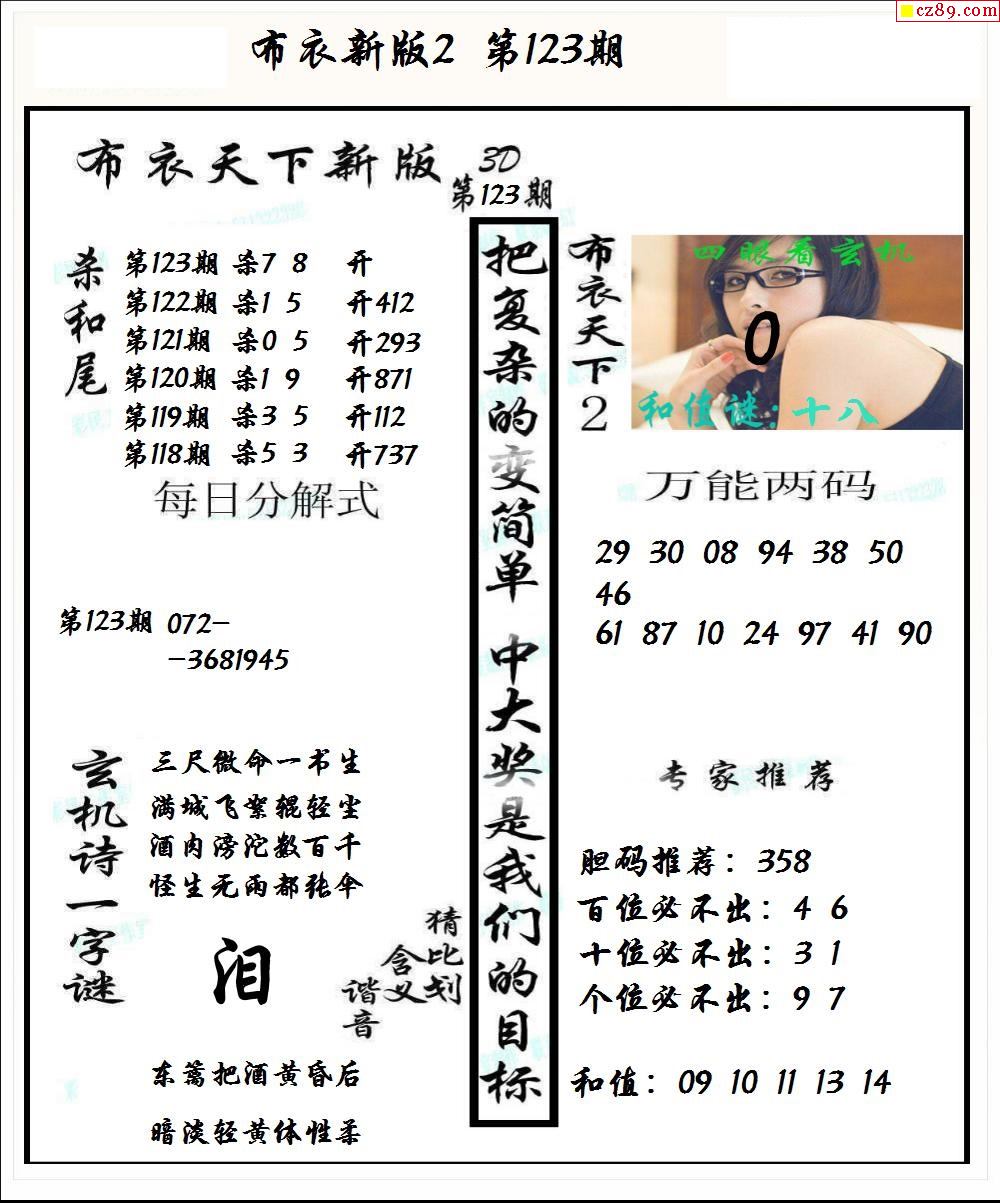 cz89.com
布衣新版2 第123期
布衣天下新版 3D
第123期
杀和尾
第123期 杀7 8 开
第122期 杀1 5 开412
第121期 杀0 5 开293
第120期 杀1 9 开871
第119期 杀3 5 开112
第118期 杀5 3 开737
每日分解式
第123期 072-
-3681945
玄机诗一字谜
三尺微命一书生
满城飞絮辊轻尘
酒肉滂沱数百千
怪生无雨都张伞
泪
猜比划
含义
谐音
东篱把酒黄昏后
暗淡轻黄体性柔
把复杂的变简单 中大奖是我们的目标
布衣天下2
四眼看玄机
0
和值谜:十八
万能两码
29 30 08 94 38 50
46
61 87 10 24 97 41 90
专家推荐
胆码推荐：358
百位必不出：4 6
十位必不出：3 1
个位必不出：9 7
和值：09 10 11 13 14